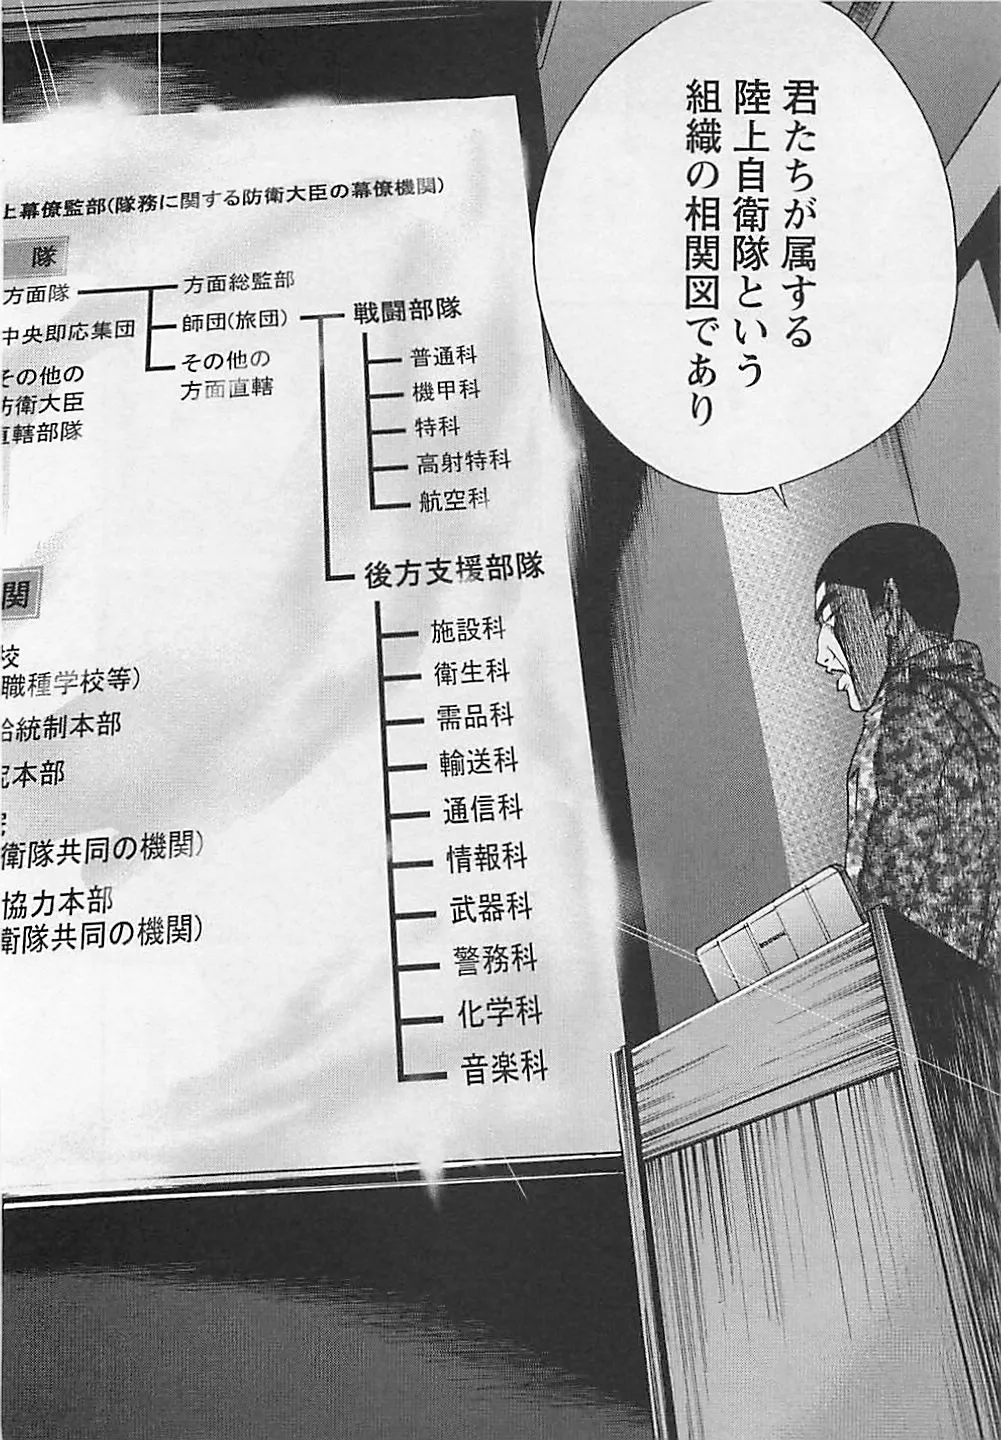 君たちが属する
陸上自衛隊という
組織の相関図であり
上幕僚監部(隊務に関する防衛大臣の幕僚機関)
隊
方面隊
方面総監部
中央即応集団
師団(旅団)
戦闘部隊
その他の
防衛大臣
直轄部隊
その他の
方面直轄
普通科
機甲科
特科
高射特科
航空科
後方支援部隊
施設科
衛生科
需品科
輸送科
通信科
情報科
武器科
警務科
化学科
音楽科
関
校
職種学校等)
給統制本部
究本部
衛隊共同の機関)
協力本部
衛隊共同の機関)